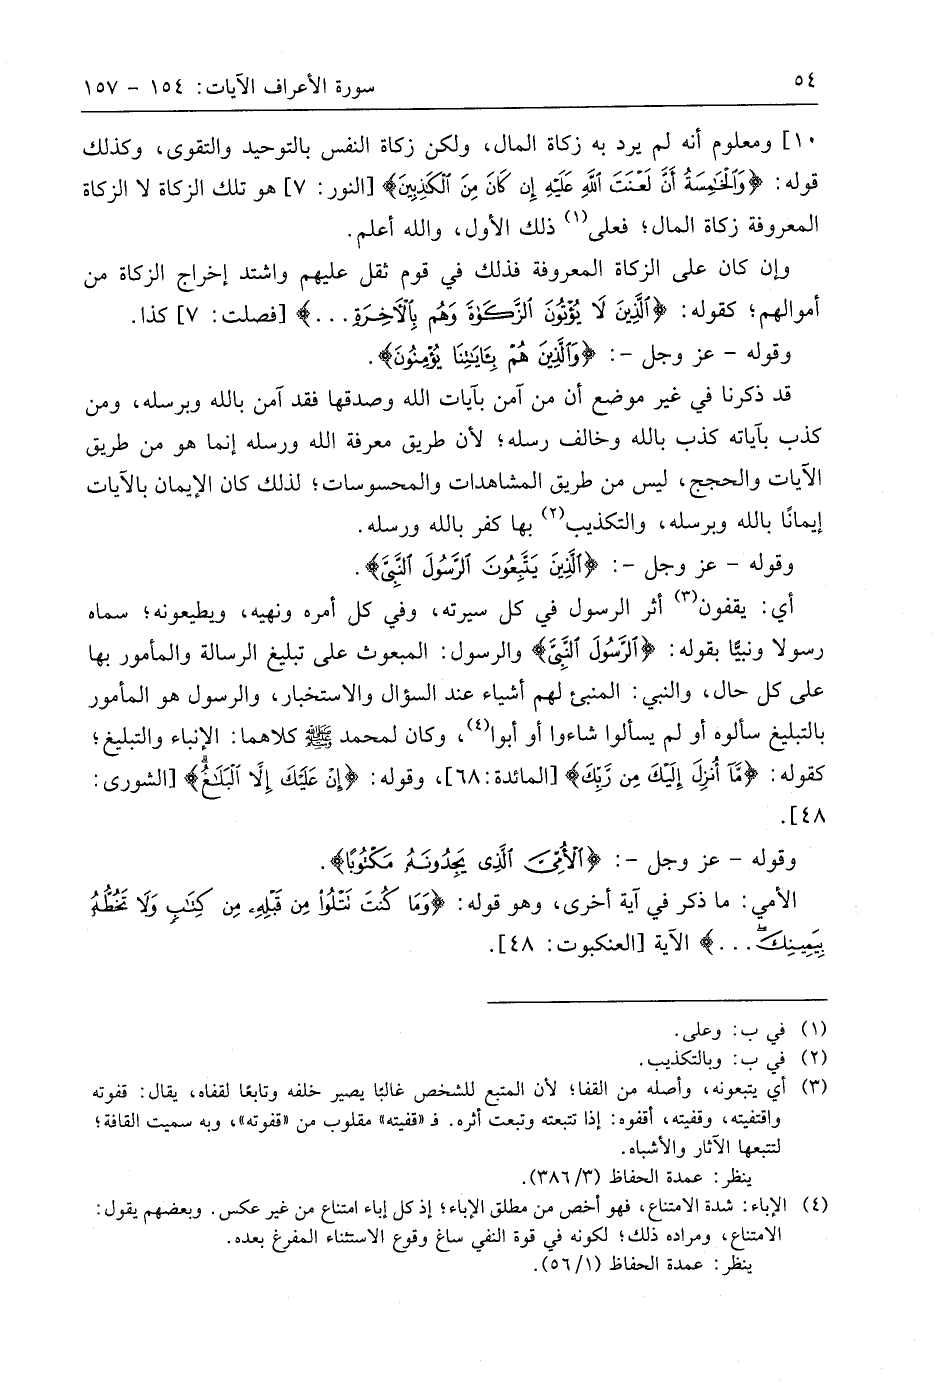 ٥٤
سورة الأعراف الآيات: ١٥٤ - ١٥٧
١٠] ومعلوم أنه لم يرد به زكاة المال، ولكن زكاة النفس بالتوحيد والتقوى، وكذلك
قوله: ﴿وَٱلْخَٰمِسَةُ أَنَّ لَعْنَتَ ٱللَّهِ عَلَيْهِ إِن كَانَ مِنَ ٱلْكَٰذِبِينَ﴾ [النور: ٧] هو تلك الزكاة لا الزكاة
المعروفة زكاة المال؛ فعلى(١) ذلك الأول، والله أعلم.
وإن كان على الزكاة المعروفة فذلك في قوم ثقل عليهم واشتد إخراج الزكاة من
أموالهم؛ كقوله: ﴿ٱلَّذِينَ لَا يُؤْتُونَ ٱلزَّكَوٰةَ وَهُم بِٱلْأَخِرَةِ...﴾ [فصلت: ٧] كذا.
وقوله - عز وجل -: ﴿وَٱلَّذِينَ هُم بِـَٔايَٰتِنَا يُؤْمِنُونَ﴾.
قد ذكرنا في غير موضع أن من آمن بآيات الله وصدقها فقد آمن بالله وبرسله، ومن
كذب بآياته كذب بالله وخالف رسله؛ لأن طريق معرفة الله ورسله إنما هو من طريق
الآيات والحجج، ليس من طريق المشاهدات والمحسوسات؛ لذلك كان الإيمان بالآيات
إيمانًا بالله وبرسله، والتكذيب(٢) بها كفر بالله ورسله.
وقوله - عز وجل -: ﴿ٱلَّذِينَ يَتَّبِعُونَ ٱلرَّسُولَ ٱلنَّبِىَّ﴾.
أي: يقفون(٣) أثر الرسول في كل سيرته، وفي كل أمره ونهيه، ويطيعونه؛ سماه
رسولا ونبيًّا بقوله: ﴿ٱلرَّسُولَ ٱلنَّبِىَّ﴾ والرسول: المبعوث على تبليغ الرسالة والمأمور بها
على كل حال، والنبي: المنبئ لهم أشياء عند السؤال والاستخبار، والرسول هو المأمور
بالتبليغ سألوه أو لم يسألوا شاءوا أو أبوا(٤)، وكان لمحمد ﷺ كلاهما: الإنباء والتبليغ؛
كقوله: ﴿مَآ أُنزِلَ إِلَيْكَ مِن رَّبِّكَ﴾ [المائدة:٦٨]، وقوله: ﴿إِنْ عَلَيْكَ إِلَّا ٱلْبَلَٰغُ﴾ [الشورى:
٤٨].
وقوله - عز وجل -: ﴿ٱلْأُمِّىَّ ٱلَّذِى يَجِدُونَهُۥ مَكْتُوبًا﴾.
الأمي: ما ذكر في آية أخرى، وهو قوله: ﴿وَمَا كُنتَ تَتْلُوا۟ مِن قَبْلِهِۦ مِن كِتَٰبٍ وَلَا تَخُطُّهُۥ
بِيَمِينِكَ...﴾ الآية [العنكبوت: ٤٨].
(١) في ب: وعلى.
(٢) في ب: وبالتكذيب.
(٣) أي يتبعونه، وأصله من القفا؛ لأن المتبع للشخص غالبًا يصير خلفه وتابعًا لقفاه، يقال: قفوته
واقتفيته، وقفيته، أقفوه: إذا تتبعته وتبعت أثره. فـ «قفيته» مقلوب من «قفوته»، وبه سميت القافة؛
لتتبعها الآثار والأشباه.
ينظر: عمدة الحفاظ (٣/ ٣٨٦).
(٤) الإباء: شدة الامتناع، فهو أخص من مطلق الإباء؛ إذ كل إباء امتناع من غير عكس. وبعضهم يقول:
الامتناع، ومراده ذلك؛ لكونه في قوة النفي ساغ وقوع الاستثناء المفرغ بعده.
ينظر: عمدة الحفاظ (١/ ٥٦).